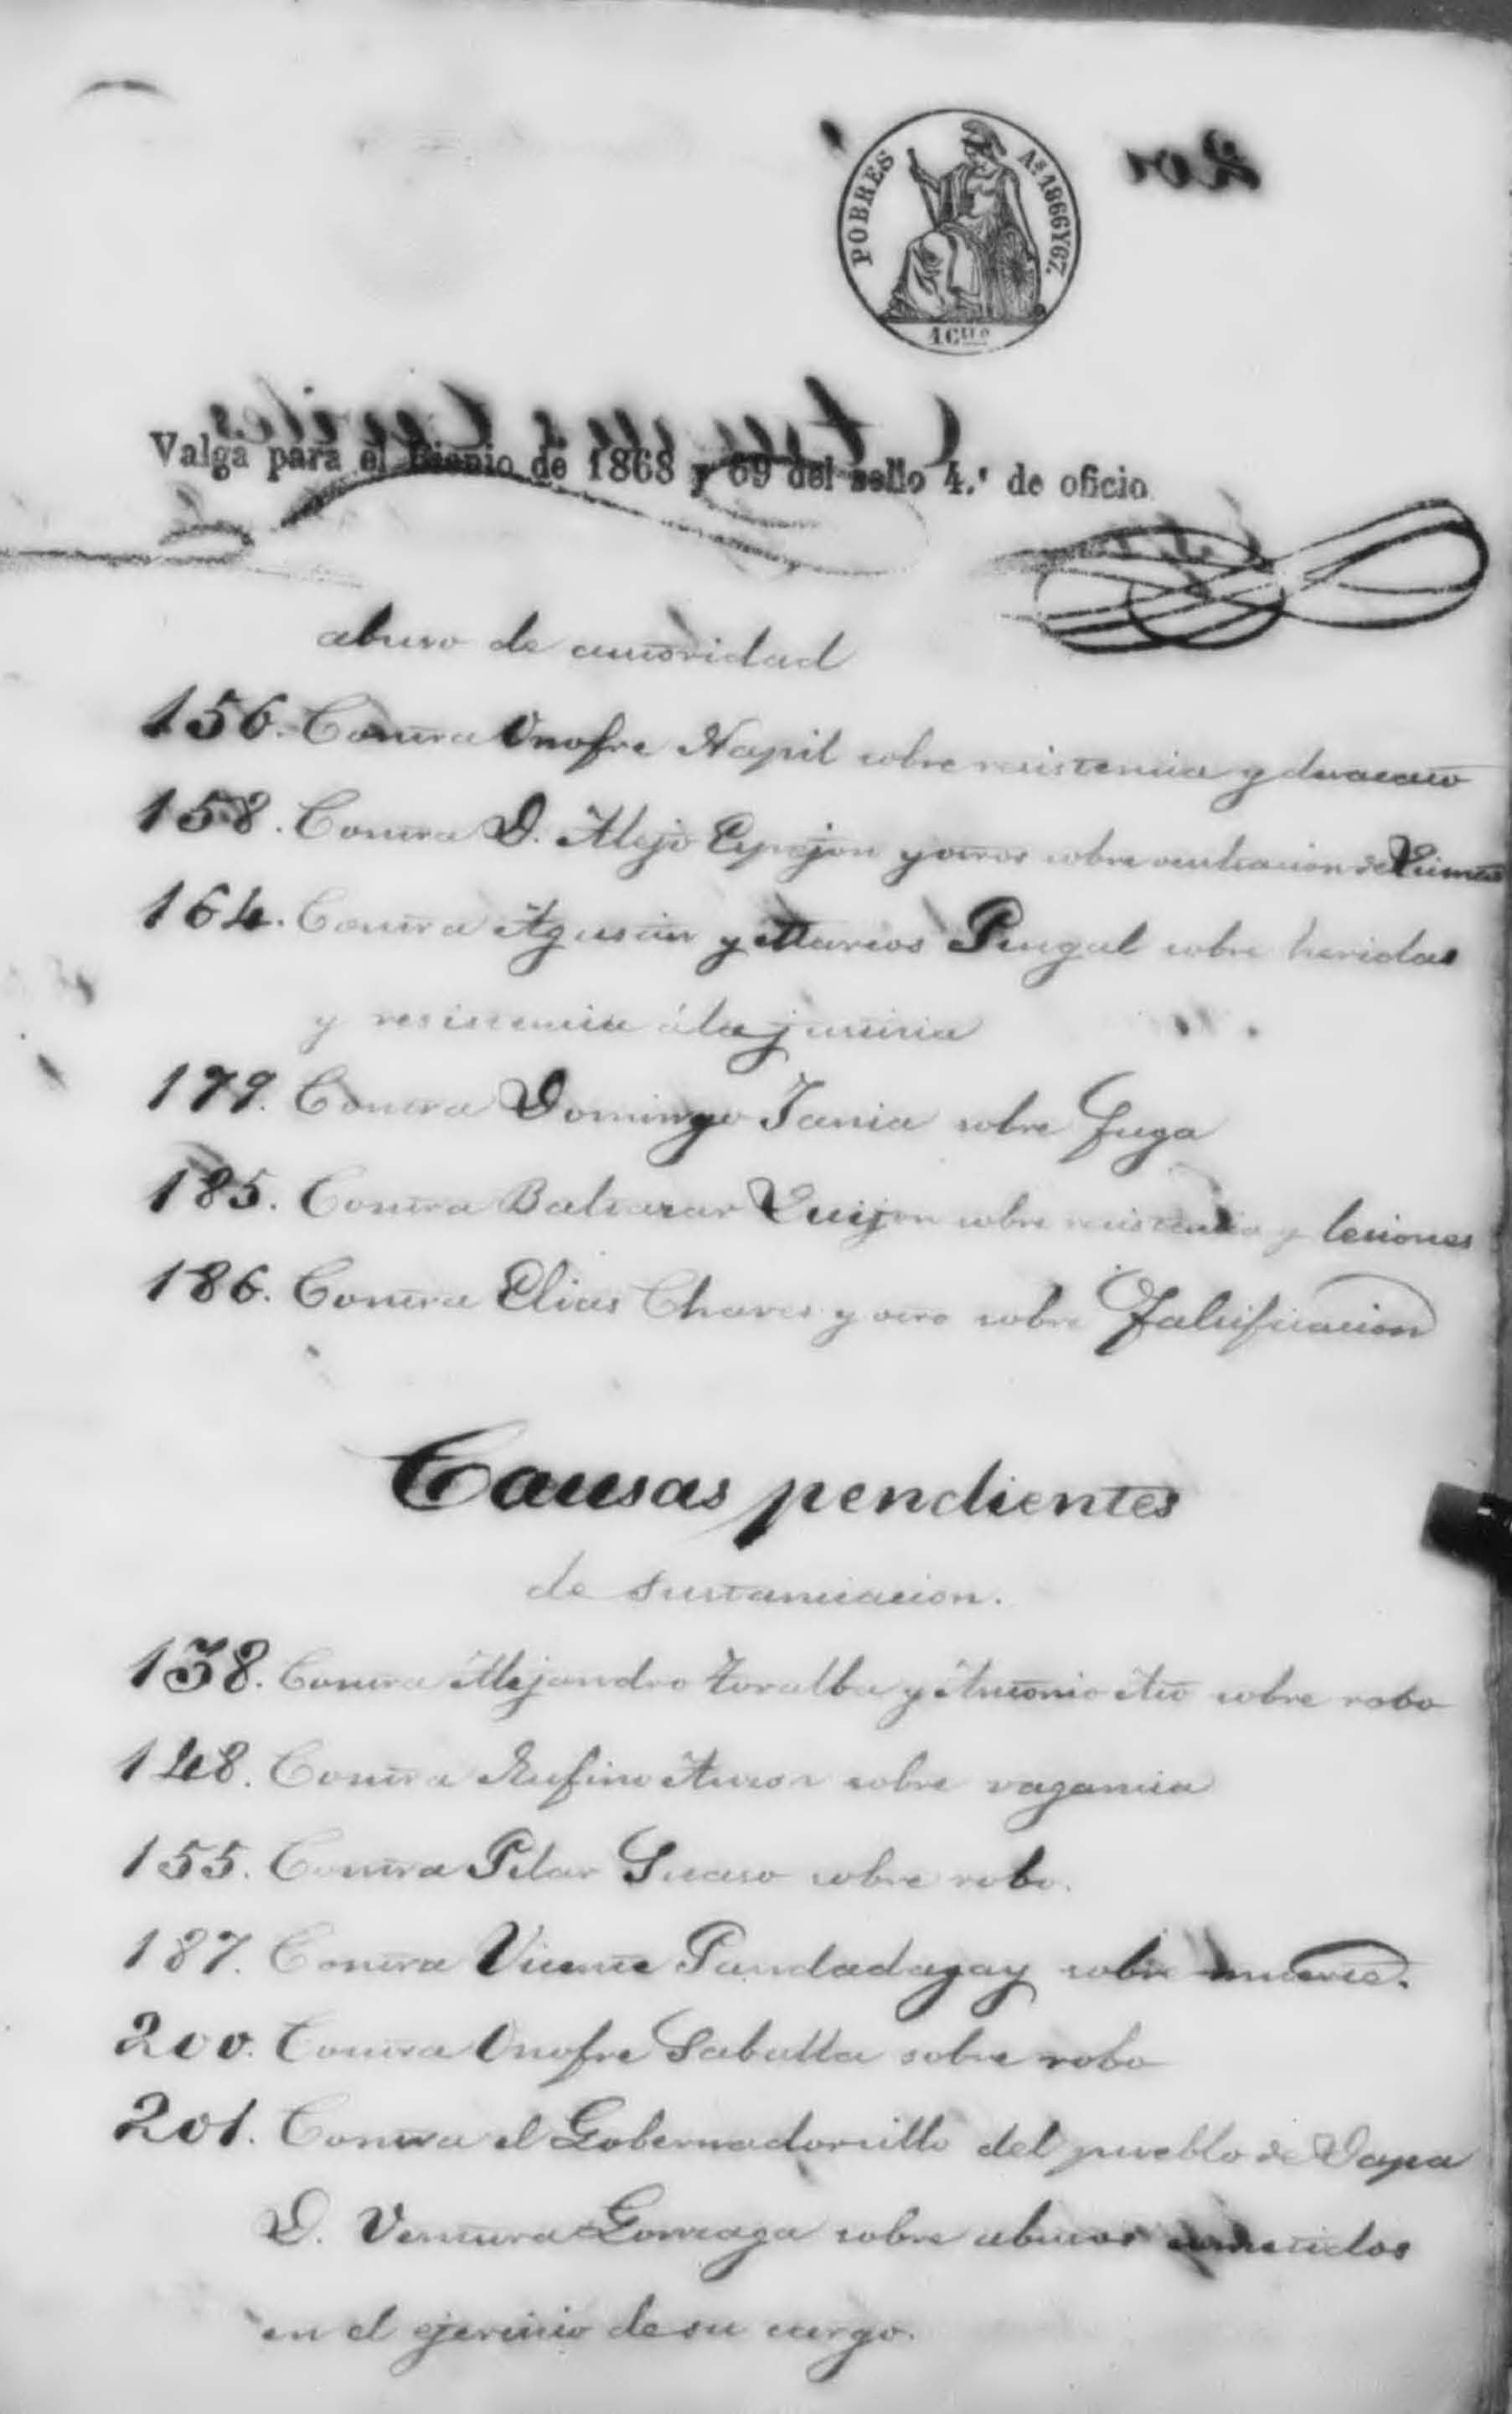 POBRES
Aˢ 1866 Y 67.
1 Cuº
Valga para el Bienio de 1868 y 69 del sello 4.º de oficio
abuso de autoridad
156. Contra Onofre Napil sobre resistencia y desacato
158. Contra D. Alejo Espejon y otros sobre
164. Contra Agustin y Marcos Pingal sobre heridas
y resistencia á la justicia
179. Contra Domingo Tania sobre fuga
185. Contra Baltazar Quijon sobre resistencia y lesiones
186. Contra Elias Chaves y otro sobre falsificacion
Causas pendientes
de sustanciacion.
138. Contra Alejandro Toralba y Antonio sobre robo
148. Contra Rufino sobre vagancia
155. Contra Pilar Lucaso sobre robo.
187. Contra Vicente Pandadagay sobre muerte.
200. Contra Onofre Saballa sobre robo
201. Contra el Gobernadorcillo del pueblo de Dapa
D. Ventura Gonzaga sobre abusos cometidos
en el ejercicio de su cargo.